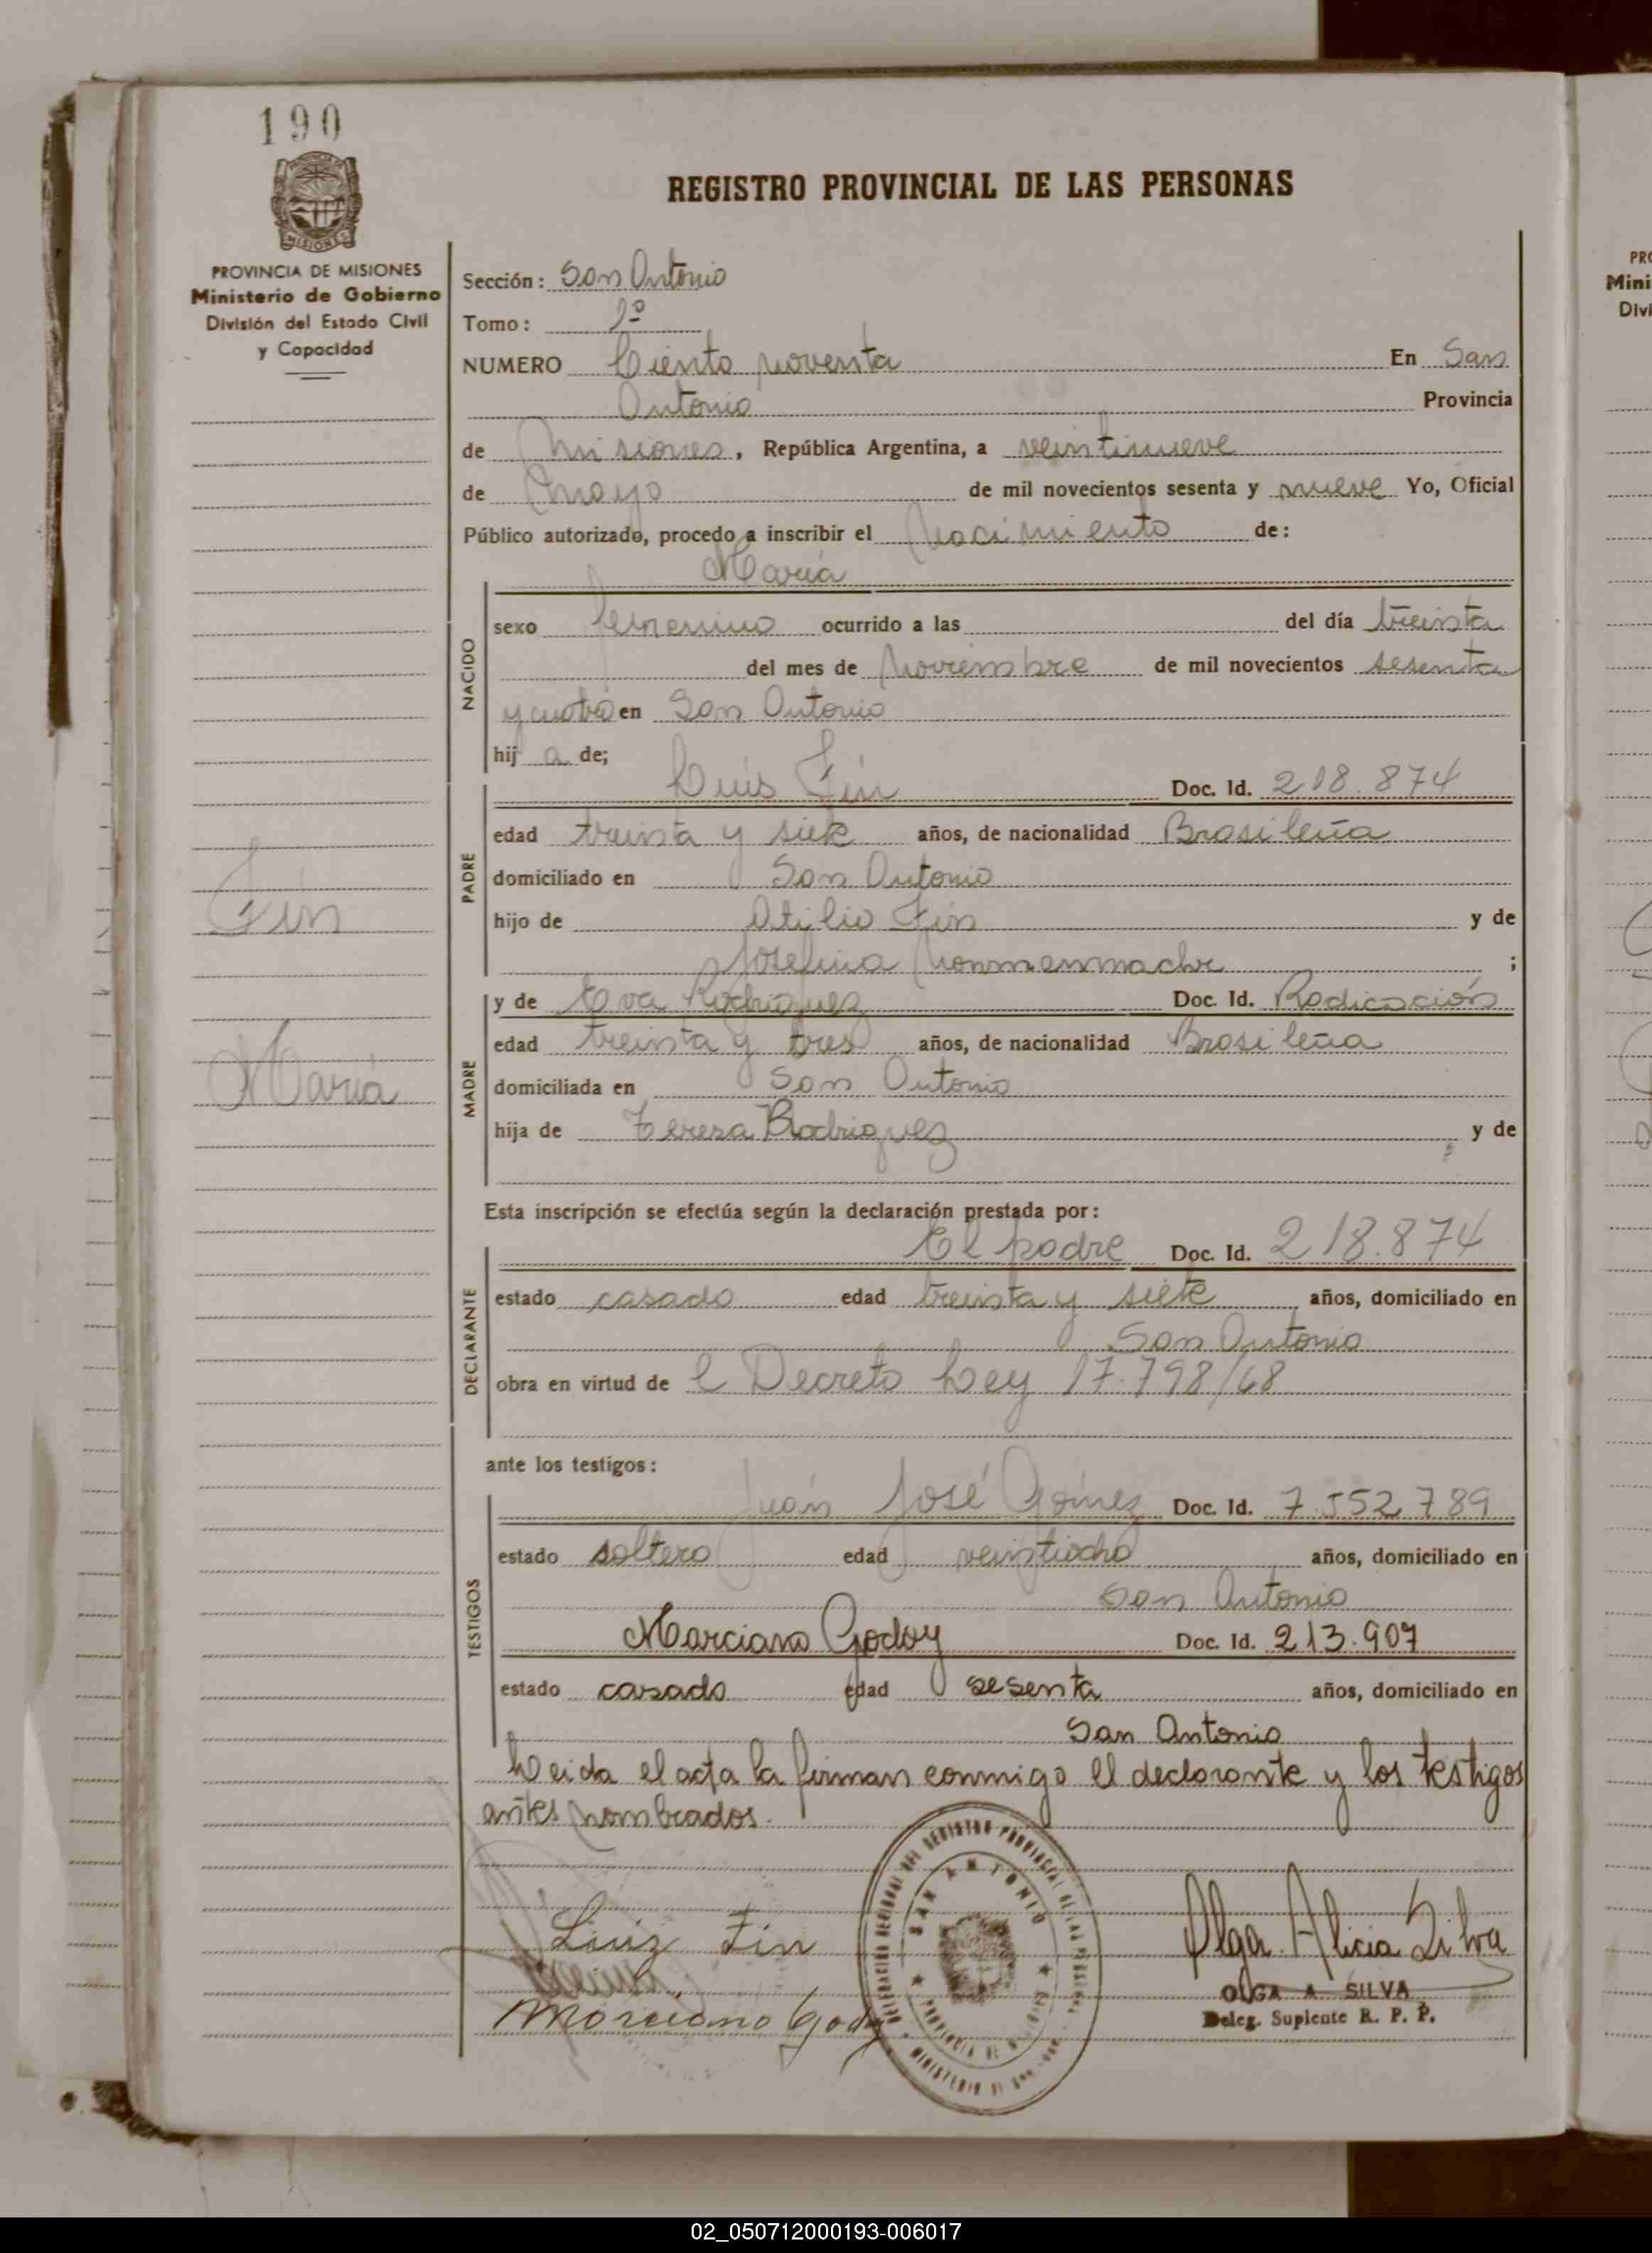 190
REGISTRO PROVINCIAL DE LAS PERSONAS
MISIONES
PROVINCIA DE MISIONES
Ministerio de Gobierno
División del Estado Civil
y Capacidad
Sección: San Antonio
Tomo: 1º
NUMERO Ciento noventa En San
Antonio Provincia
de Misiones, República Argentina, a veintinueve
de mayo de mil novecientos sesenta y nueve Yo, Oficial
Público autorizado, procedo a inscribir el Nacimiento de:
María
NACIDO
sexo femenino ocurrido a las del día treinta
del mes de Noviembre de mil novecientos sesenta
y cuatro en San Antonio
hij a de;
Luis Fin Doc. Id. 218.874
PADRE
edad treinta y siete años, de nacionalidad Brasileña
domiciliado en San Antonio
hijo de Atilio Fin y de
Josefina Nonmenmacher ;
Fin
María
MADRE
y de Eva Rodriguez Doc. Id. Radicación
edad treinta y tres años, de nacionalidad Brasileña
domiciliada en San Antonio
hija de Tereza Rodriguez y de
Esta inscripción se efectúa según la declaración prestada por:
El padre Doc. Id. 218.874
DECLARANTE
estado casado edad treinta y siete años, domiciliado en
San Antonio
obra en virtud de l Decreto Ley 17.798/68
ante los testigos:
Juan José Gómez Doc. Id. 7.552.789
TESTIGOS
estado soltero edad veintiocho años, domiciliado en
San Antonio
Marciano Godoy Doc. Id. 213.907
estado casado edad sesenta años, domiciliado en
San Antonio
Leida el acta la firman conmigo el declarante y los testigos
antes nombrados.
Luiz Fin
Marciano Godoy
SAN ANTONIO
Olga Alicia Silva
OLGA A. SILVA
Deleg. Suplente R. P. P.
PRO
Mini
Divi
02_050712000193-006017